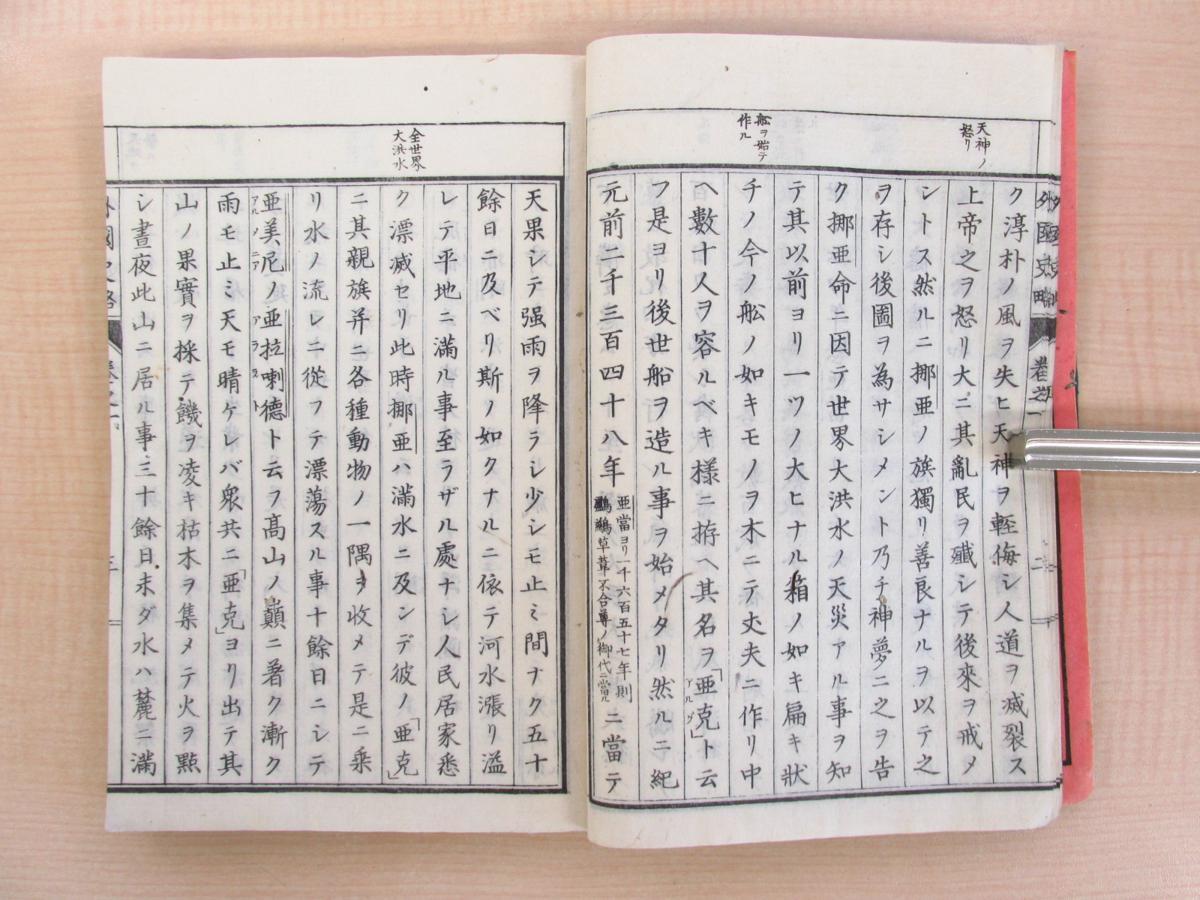 天神ノ
怒リ
舩ヲ始テ
作ル
外國史略
卷之一
二
ク淳朴ノ風ヲ失ヒ天神ヲ輕侮シ人道ヲ滅裂ス
上帝之ヲ怒リ大ニ其亂民ヲ殲シテ後來ヲ戒メ
ントス然ルニ挪亜ノ族獨リ善良ナルヲ以テ之
ヲ存シ後圖ヲ為サシメント乃チ神夢ニ之ヲ告
ク挪亜命ニ因テ世界大洪水ノ天災アル事ヲ知
テ其以前ヨリ一ツノ大ヒナル箱ノ如キ扁キ狀
チノ今ノ舩ノ如キモノヲ木ニテ丈夫ニ作リ中
ヘ數十人ヲ容ルベキ様ニ拵ヘ其名ヲ「亜克」ト云
アルク
フ是ヨリ後世船ヲ造ル事ヲ始メタリ然ルニ紀
元前二千三百四十八年
亜當ヨリ一千六百五十七年則
鸕鷀草葺不合尊ノ御代ニ當ル
ニ當テ
全世界
大洪水
天果シテ强雨ヲ降ラシ少シモ止ミ間ナク五十
餘日ニ及ベリ斯ノ如クナルニ依テ河水漲リ溢
レテ平地ニ滿ル事至ラザル處ナシ人民居家悉
ク漂滅セリ此時挪亜ハ滿水ニ及ンデ彼ノ「亜克」
ニ其親族并ニ各種動物ノ一隅ヲ收メテ是ニ乗
リ水ノ流レニ從フテ漂蕩スル事十餘日ニシテ
亜美尼ノ亜拉喇德ト云フ髙山ノ巓ニ著ク漸ク
アルメニア
アララト
雨モ止ミ天モ晴ケレバ衆共ニ「亜克」ヨリ出テ其
山ノ果實ヲ採テ饑ヲ凌キ枯木ヲ集メテ火ヲ㸃
シ晝夜此山ニ居ル事三十餘日未ダ水ハ麓ニ滿